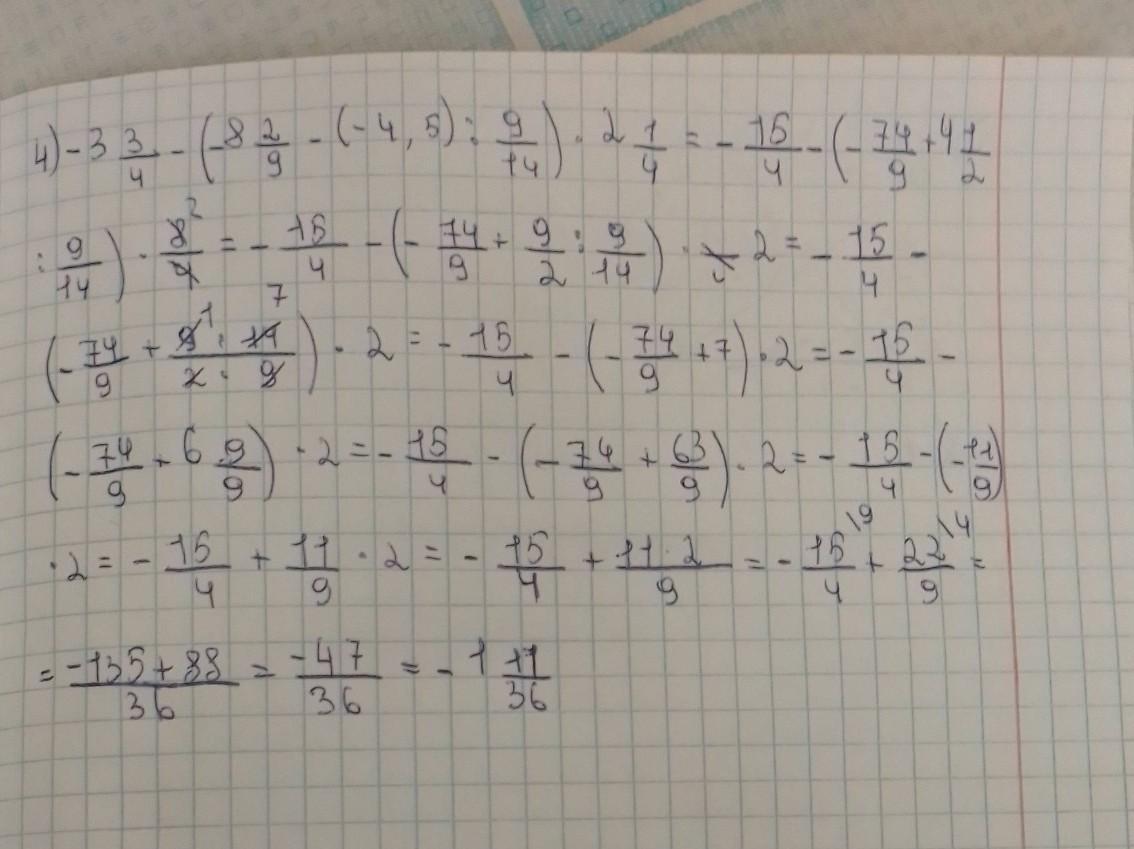 4) -3 3/4 - (-8 2/9 - (-4,5) : 9/14) · 2 1/4 = - 15/4 - (- 74/9 + 4 1/2
: 9/14) · 8²/4 = - 15/4 - (- 74/9 + 9/2 : 9/14) · 2 = - 15/4 -
(- 74/9 + 9¹ · 14⁷/2 · 9) · 2 = - 15/4 - (- 74/9 + 7) · 2 = - 15/4 -
(- 74/9 + 6 9/9) · 2 = - 15/4 - (- 74/9 + 63/9) · 2 = - 15/4 - (- 11/9)
· 2 = - 15/4 + 11/9 · 2 = - 15/4 + 11 · 2/9 = - 15/4 \9 + 22/9 \4 =
= -135 + 88/36 = -47/36 = - 1 11/36